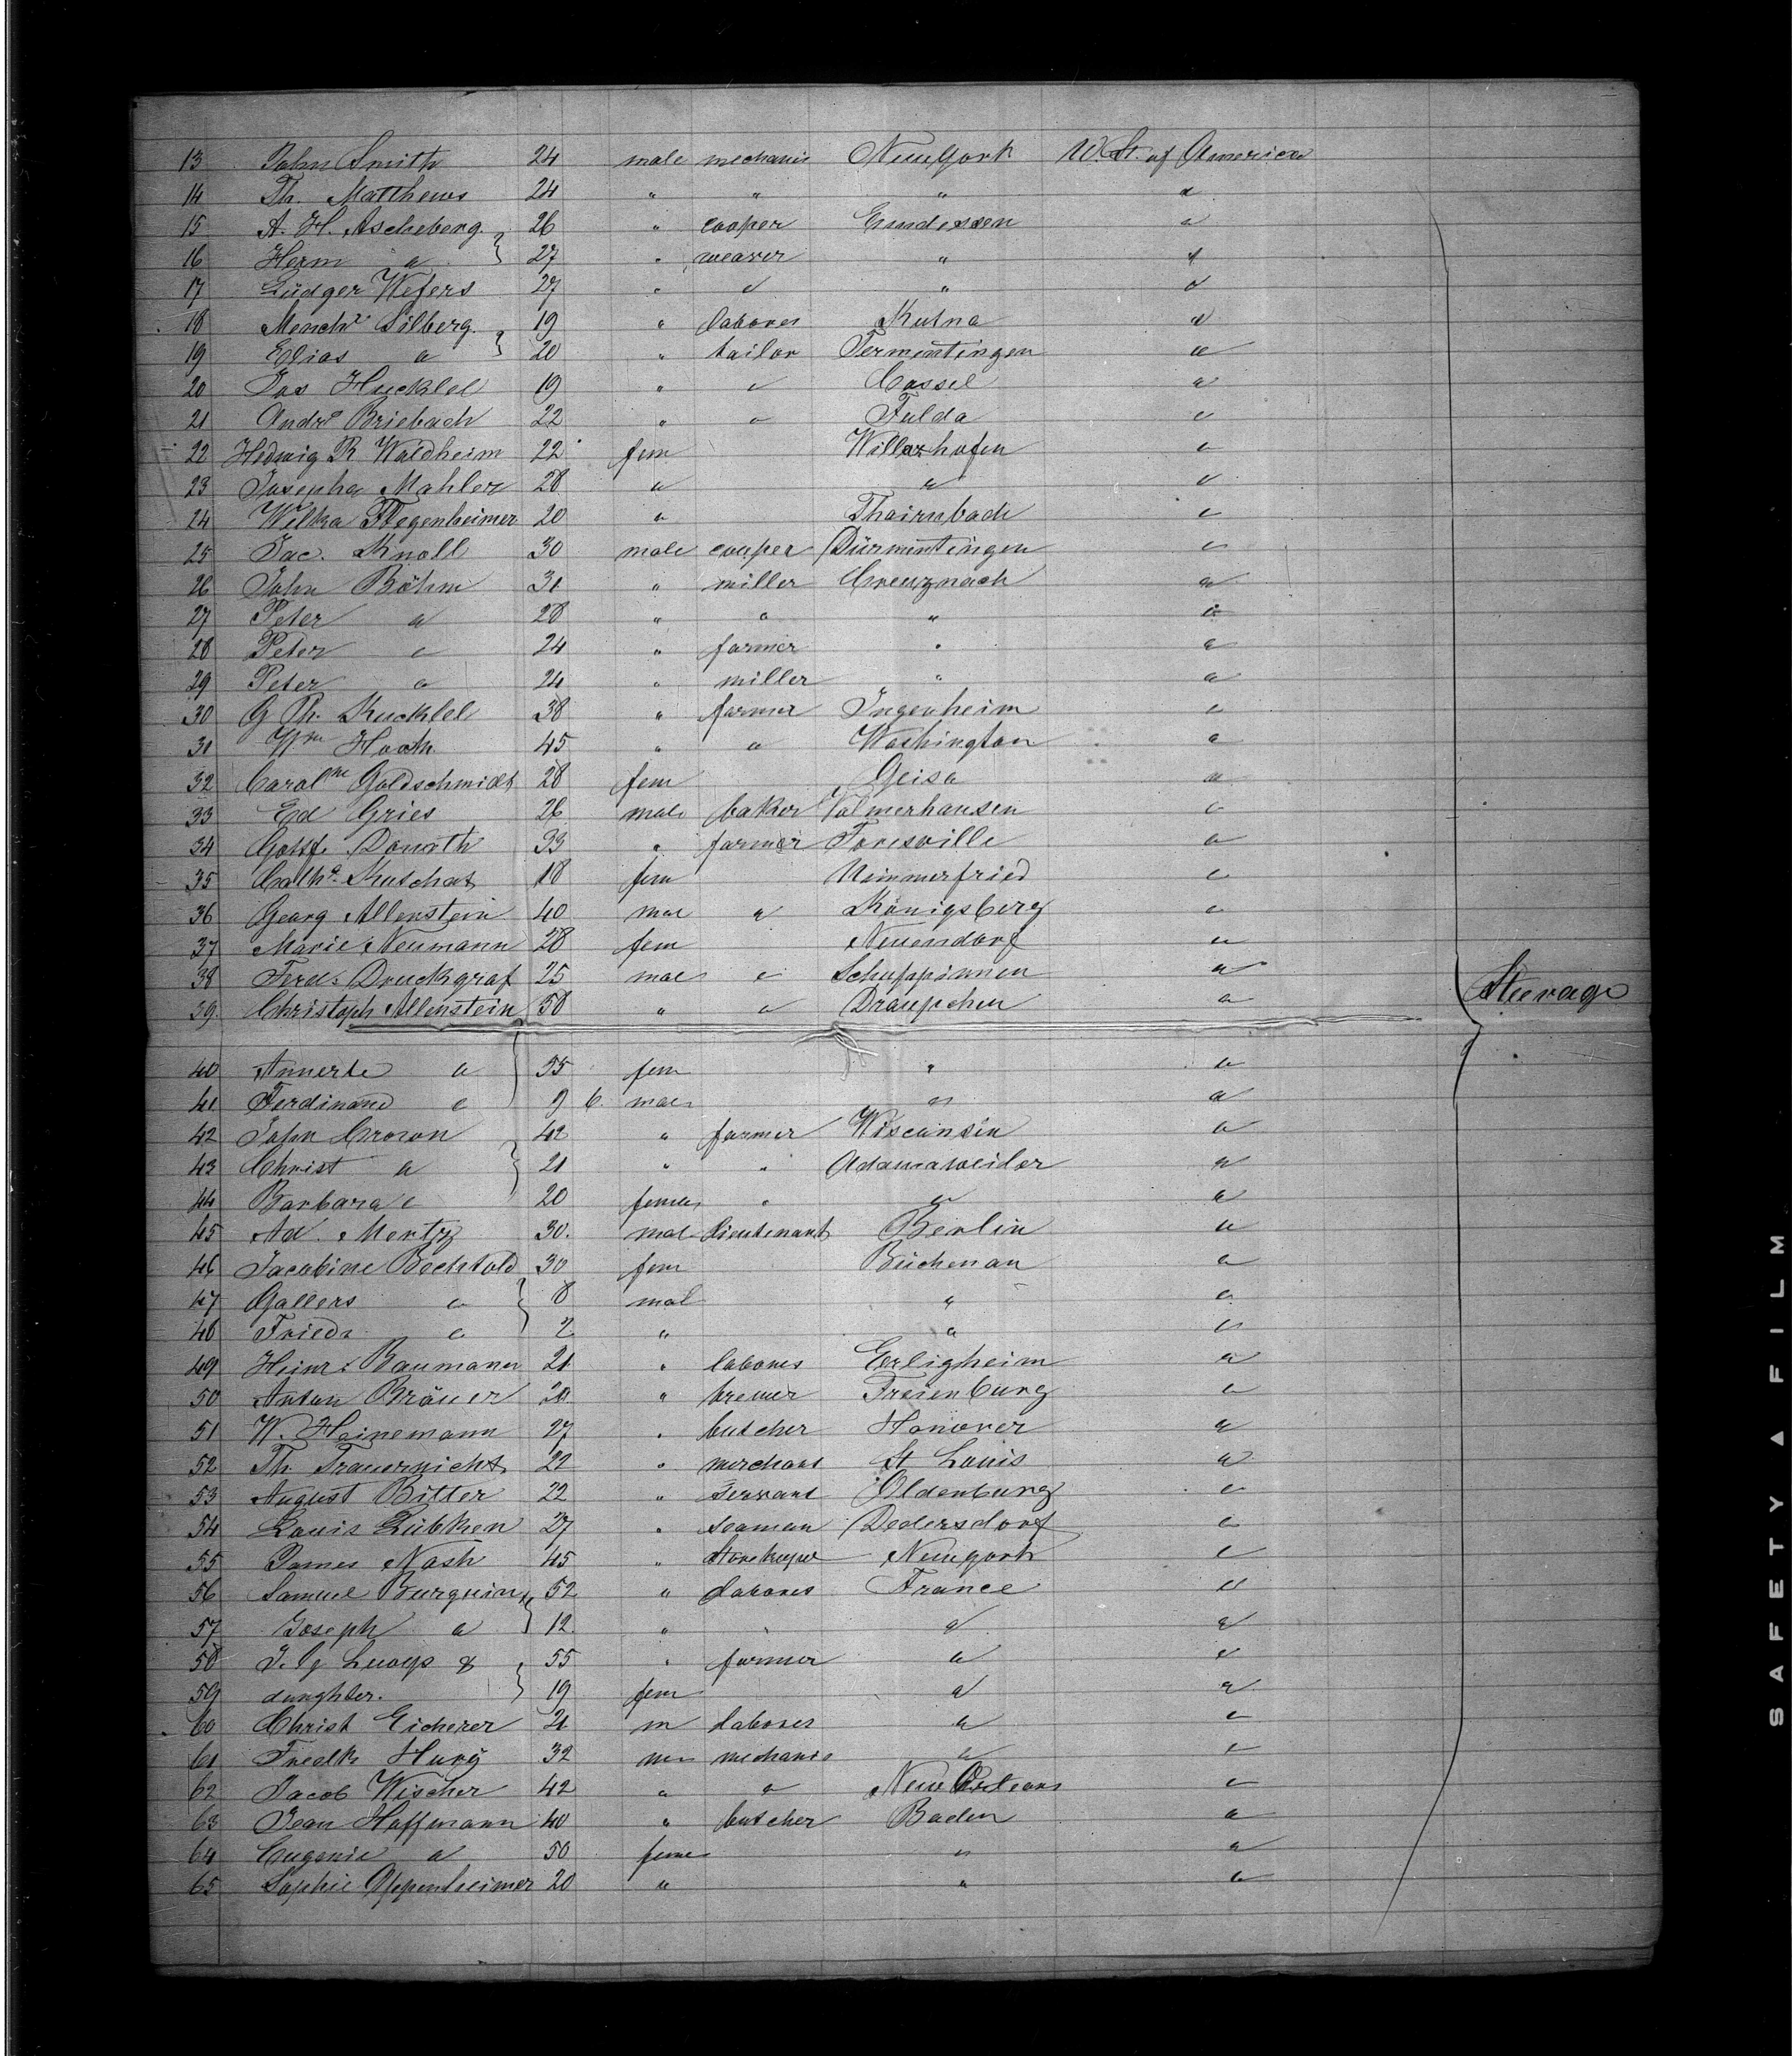 13 John Smith 24 male mechanic NewYork U. St. of America
14 Th. Matthews 24 " " " "
15 A. H. Ascheberg 26 " cooper Emdessen "
16 Herm " 27 " weaver " "
17 Lüdger Wefers 27 " " " "
18 Mench Silberg 19 " labores Kutna "
19 Elias " 20 " tailor Termentingen "
20 Jos Hucklel 19 " " Cassel "
21 Andr Briebach 22 " " Fulda "
22 Hedwig R Waldheim 22 fem Willarzhofen "
23 Josepha Mahler 28 " " "
24 Wilka Flegenheimer 20 " Thairnbach "
25 Jac. Knoll 30 male couper Dürmentingen "
26 John Böhm 31 " miller Creuznach "
27 Peter " 28 " " " "
28 Peter " 24 " farmer " "
29 Peter " 24 " miller " "
30 G Ph. Kucklel 38 " farmer Ingenheim "
31 Wm Hooth 45 " " Washington "
32 Carolne Goldschmidt 28 fem Geisa "
33 Ed Gries 26 male baker Volmerhausen "
34 Gottf. Donath 33 " farmer Foresville "
35 Catha Kuschat 18 fem Nimmerfried "
36 Georg Allenstein 40 mal " Königsberg "
37 Marie Neumann 28 fem Neuendorf "
38 Ferd. Druckgraf 25 mal " Schuppinnen "
Steerage
39 Christoph Allenstein 58 " " Draupchen "
40 Annerte " 55 fem " "
41 Ferdinand " 9 6 mal " "
42 John Crown 42 " farmer Wisconsin "
43 Christ " 21 " " Adamsweiler "
44 Barbara " 20 female " " "
45 Ad. Mertz 30. mal lieutenant Berlin "
46 Jacobine Bechtold 30 fem Büchenau "
47 Gallers " 8 mal " "
48 Friedr " 2 " " "
49 Heinr. Baumann 21 " labores Erligheim "
50 Anton Bräuer 20 " brewer Freienburg "
51 W. Heinemann 27 " butcher Hanover "
52 Th Trauernicht 22 " merchant St Louis "
53 August Bitter 22 " servant Oldenburg "
54 Louis Lübken 27 " seaman Dedersdorf "
55 James Nash 45 " storekeeper Newyork "
56 Samuel Burquin 52 " labores France "
57 Joseph " 12 " " "
58 J. J 55 " farmer " "
59 daughter. 19 fem " "
60 Christ Eicherer 21 m labores " "
61 Fredk Hury 32 m mechanic " "
62 Jacob Wischer 42 " " New Orleans "
63 Jean Hoffmann 40 " butcher Baden "
64 Eugenie " 50 feme " "
65 Sophie Oppenheimer 20 " " "
SAFETY FILM